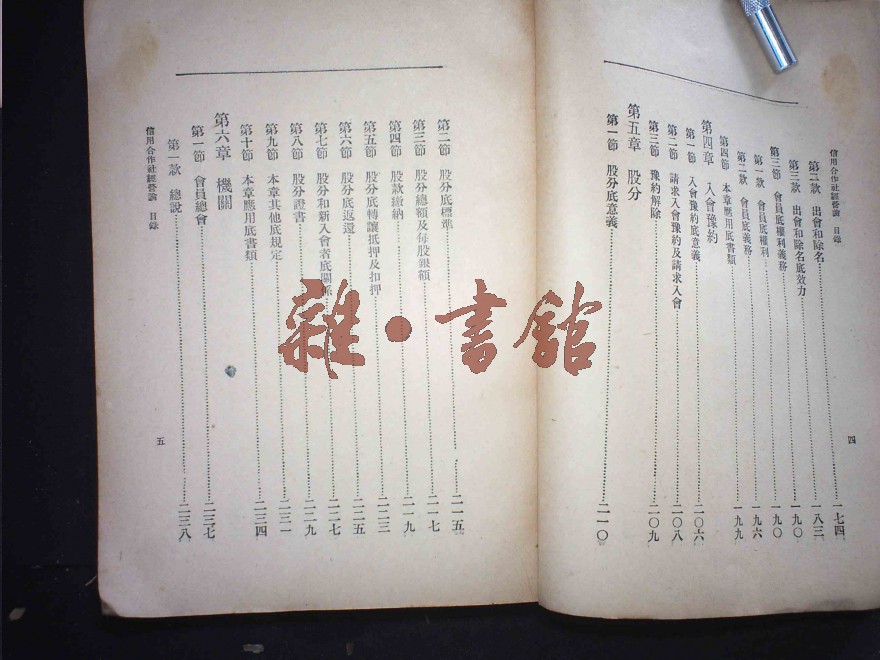 信用合作社經營論 目錄
第二款 出會和除名……一七四
第三款 出會和除名底效力……一八三
第三節 會員底權利義務……一九〇
第一款 會員底權利……一九〇
第二款 會員底義務……一九六
第四節 本章應用底書類……一九九
第四章 入會豫約
第一節 入會豫約底意義……二〇六
第二節 請求入會豫約及請求入會……二〇八
第三節 豫約解除……二〇九
第五章 股分
第一節 股分底意義……二一〇
四
第二節 股分底標準……二一五
第三節 股分總額及每股銀額……二一七
第四節 股款繳納……二一九
第五節 股分底轉讓抵押及扣押……二二三
第六節 股分底返還……二二五
第七節 股分和新入會者底關係……二二七
第八節 股分證書……二二九
第九節 本章其他底規定……二三一
第十節 本章應用底書類……二三四
第六章 機關
第一節 會員總會……二三七
第一款 總說……二三八
信用合作社經營論 目錄
五
雜·書館